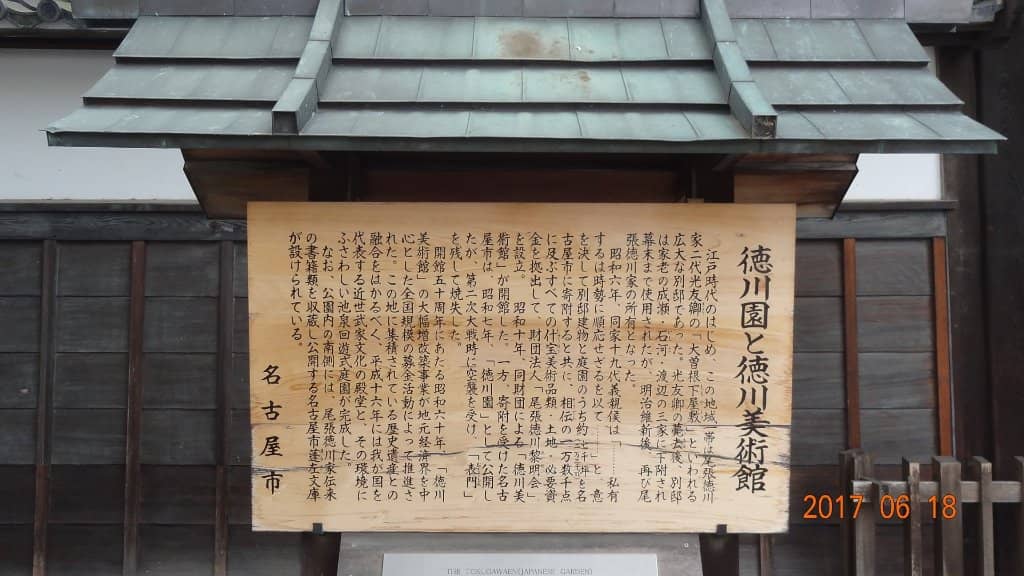 徳川園と徳川美術館
江戸時代のはじめ、この地域一帯は尾張徳川
家二代光友卿の「大曽根下屋敷」といわれる
広大な別邸であった。光友卿の薨去後、別邸
は家老の成瀬、石河、渡辺の三家に下附され
幕末まで使用されたが、明治維新後、再び尾
張徳川家の所有となった。
昭和六年、同家十九代義親侯は「……私有
するは時勢に順応せざるを以て……」と 意
を決して別邸建物と庭園のうち約 を名
古屋市に寄附すると共に、相伝の一万数千点
に及ぶすべての什宝美術品類、土地・必要資
金を拠出して、財団法人「尾張徳川黎明会」
を設立。昭和十年、同財団による「徳川美
術館」が開館した。一方、寄附を受けた名古
屋市は、昭和七年、「徳川園」として公開し
たが、第二次大戦時に空襲を受け、「表門」
を残して焼失した。
開館五十周年にあたる昭和六十年、「徳川
美術館」の大幅増改築事業が地元経済界を中
心とした全国規模の募金活動によって推進さ
れた。この地に集積されている歴史遺産との
融合をはかるべく、平成十六年には我が国を
代表する近世武家文化の殿堂と、その環境に
ふさわしい池泉回遊式庭園が完成した。
なお、公園内の南側には、尾張徳川家伝来
の書籍類を収蔵し公開する名古屋市蓬左文庫
が設けられている。
名古屋市
THE TOKUGAWAEN(JAPANESE GARDEN)
2017 06 18